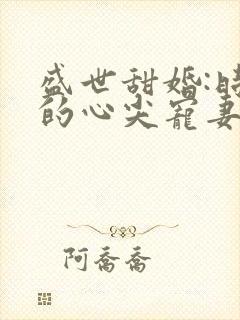 盛世甜婚:
的心尖宠妻
阿喬喬